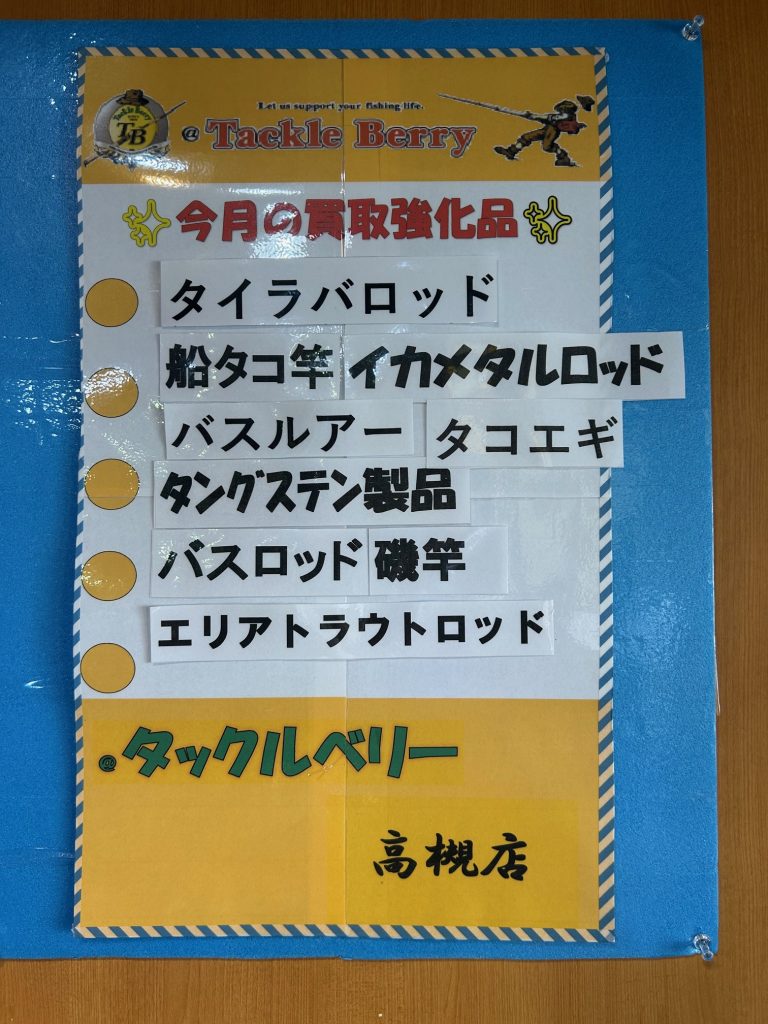 Let us support your fishing life.
Tackle Berry
TB
@ Tackle Berry
今月の買取強化品
タイラバロッド
船タコ竿 イカメタルロッド
バスルアー タコエギ
タングステン製品
バスロッド 磯竿
エリアトラウトロッド
@ タックルベリー
高槻店